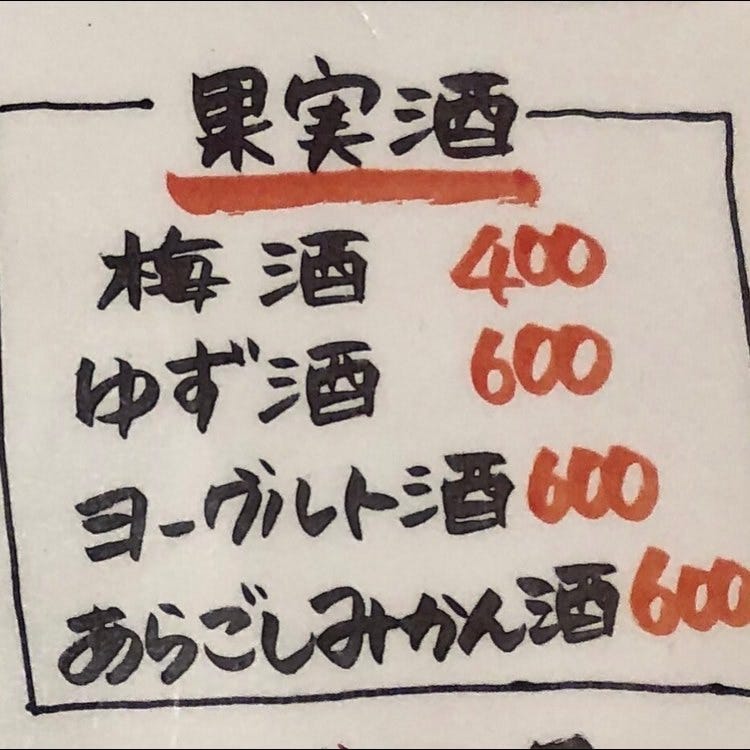 果実酒
梅酒 400
ゆず酒 600
ヨーグルト酒 600
あらごしみかん酒 600